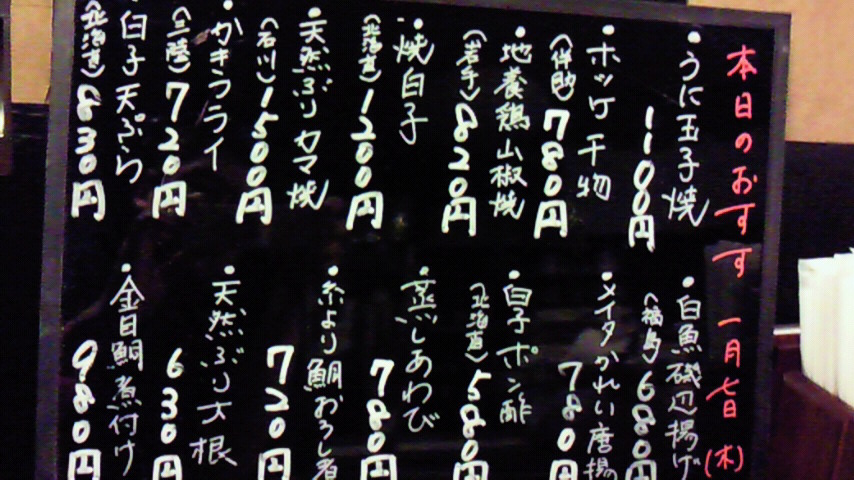 本日のおすすす 一月七日(木)
・うに玉子焼
1100円
・ホッケ干物
780円
・地養鶏山椒焼
(岩手) 820円
・焼白子
(北海道) 1200円
・天然ぶりカマ焼
(石川) 1500円
・かきフライ
(三陸) 720円
・白子天ぷら
(北海道) 830円
・白魚磯辺揚げ
(福島) 680円
・メイタかれい唐揚
780円
・白子ポン酢
(北海道) 580円
・蒸しあわび
780円
・糸より鯛おろし煮
720円
・天然ぶり大根
630円
・金目鯛煮付け
980円